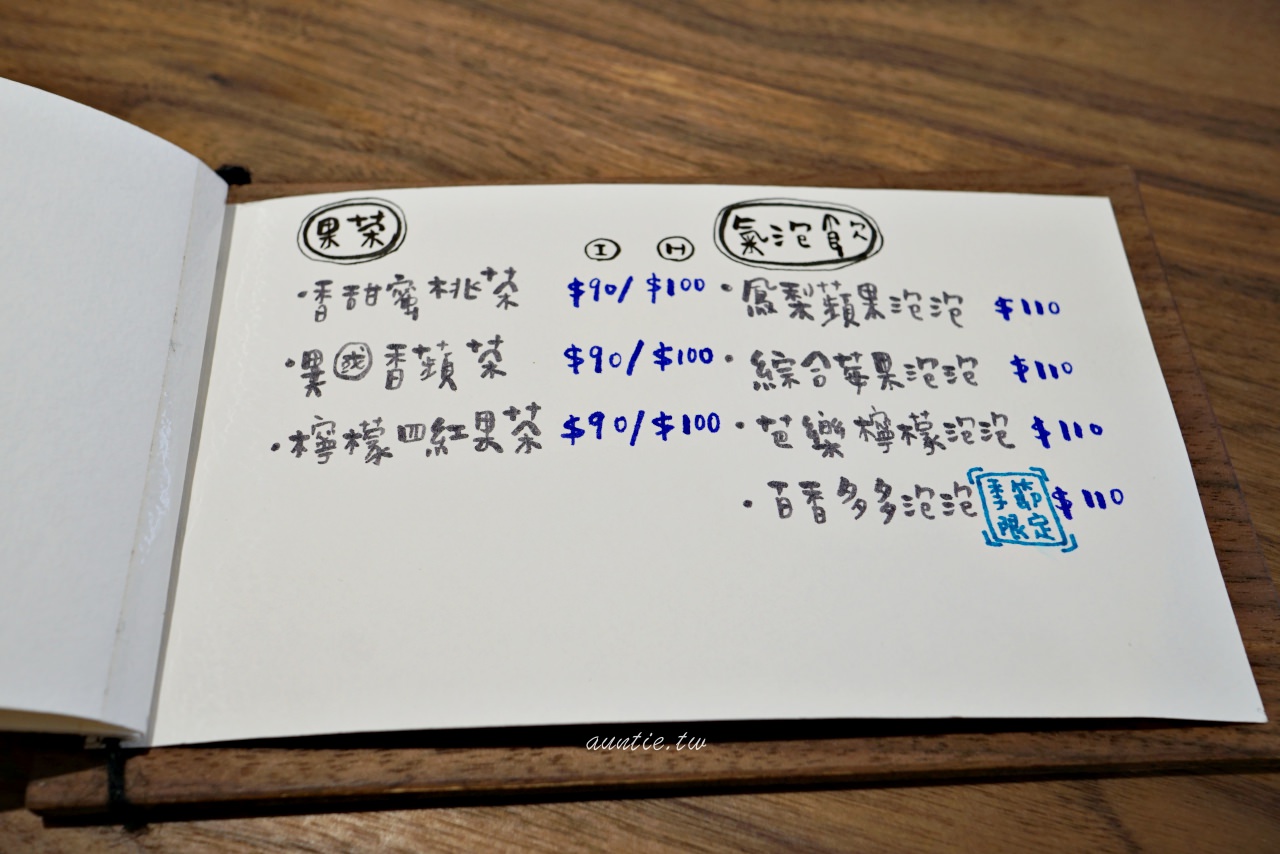 果茶
Ⓘ Ⓗ
•香甜蜜桃茶 $90/$100
•異國香蘋茶 $90/$100
•檸檬四紅果茶 $90/$100
氣泡飲
•鳳梨蘋果泡泡 $110
•綜合莓果泡泡 $110
•芭樂檸檬泡泡 $110
•百香多多泡泡 季節限定 $110
auntie.tw